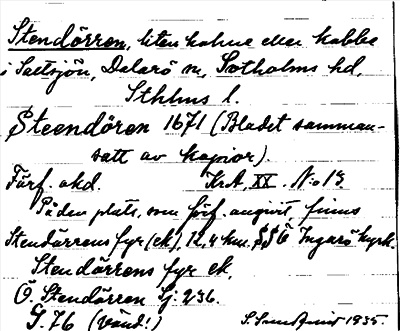 Stendörren, liten holme eller kobbe
i Saltsjön, Dalarö sn, Sotholms hd,
Sthlms l.
Steendören 1671 (Bladet samman-
satt av kopior).
Förf. okd. KrA, XX. N:o 13.
På den plats, som förf. angivit, finns
Stendörrens fyr (ek), 12,4 km. SSÖ Ingarö kyrk.
Stendörrens fyr ek.
Ö. Stendörren Sj: 236.
G. 76 (Vänd!) S. Sundquist 1935.